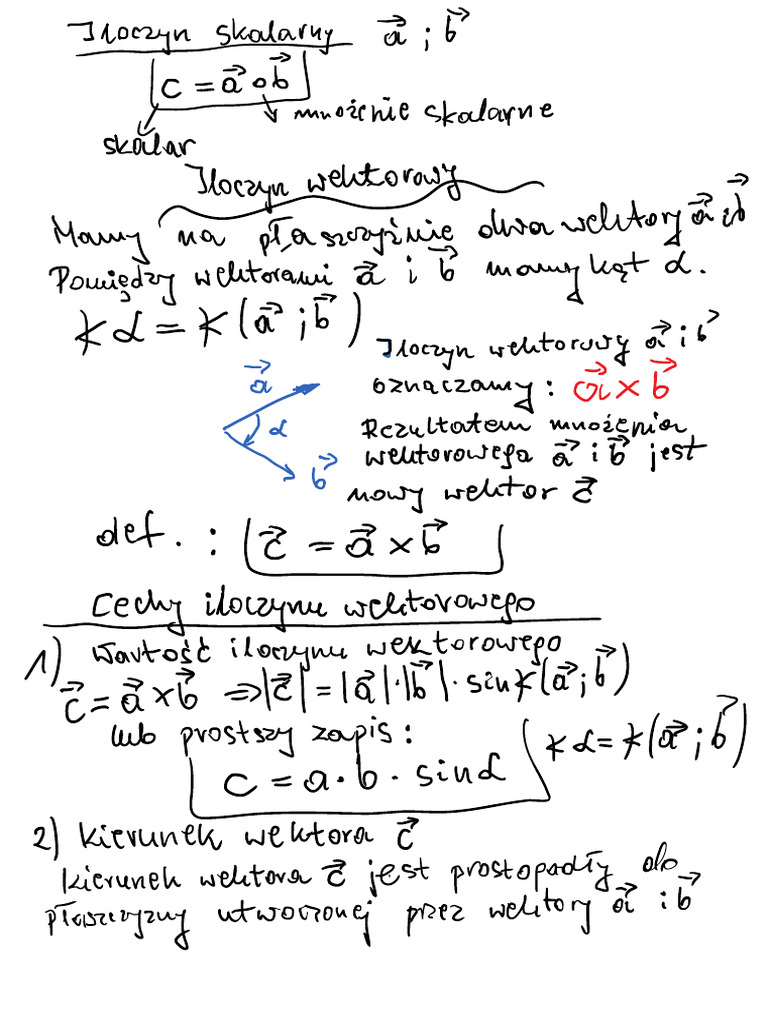 Iloczyn skalarny a⃗ ; b⃗
c = a⃗ ∘ b⃗
mnożenie skalarne
skalar
Iloczyn wektorowy
Mamy na płaszczyźnie dwa wektory a⃗ i b⃗
Pomiędzy wektorami a⃗ i b⃗ mamy kąt α.
∢ α = ∢ (a⃗ ; b⃗)
Iloczyn wektorowy a⃗ i b⃗
oznaczamy : a⃗ × b⃗
Rezultatem mnożenia
wektorowego a⃗ i b⃗ jest
nowy wektor c⃗
a⃗
α
b⃗
def. : c⃗ = a⃗ × b⃗
Cechy iloczynu wektorowego
1) Wartość iloczynu wektorowego
c⃗ = a⃗ × b⃗ ⇒ |c⃗| = |a⃗| · |b⃗| · sin∢(a⃗ ; b⃗)
lub prostszy zapis :
c = a · b · sinα
∢ α = ∢(a⃗ ; b⃗)
2) Kierunek wektora c⃗
Kierunek wektora c⃗ jest prostopadły do
płaszczyzny utworzonej przez wektory a⃗ i b⃗